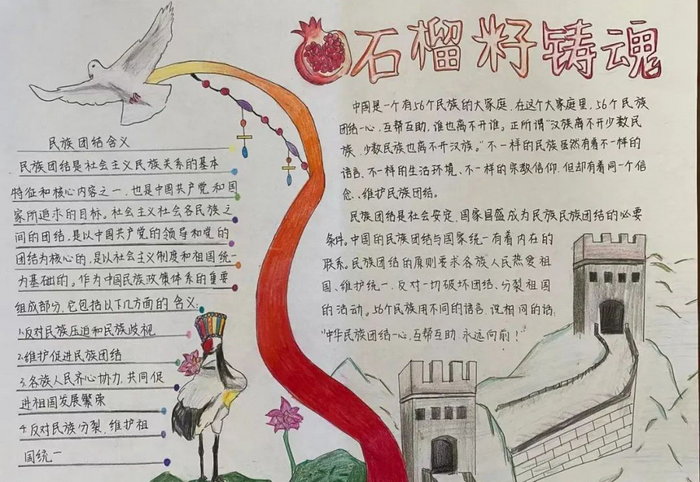 石榴籽铸魂
民族团结含义
民族团结是社会主义民族关系的基本
特征和核心内容之一,也是中国共产党和国
家所追求的目标。社会主义社会各民族之
间的团结,是以中国共产党的领导和党的
团结为核心的,是以社会主义制度和祖国统一
为基础的。作为中国民族政策体系的重要
组成部分,它包括以下几方面的含义:
1.反对民族压迫和民族歧视
2.维护促进民族团结
3.各族人民齐心协力,共同促
进祖国发展繁荣
4.反对民族分裂,维护祖
国统一
中国是一个有56个民族的大家庭,在这个大家庭里,56个民族
团结一心,互帮互助,谁也离不开谁。正所谓“汉族离不开少数民
族,少数民族也离不开汉族。”不一样的民族虽然有着不一样的
语言、不一样的生活环境、不一样的宗教信仰,但却有着同一个信
念、维护民族团结。
民族团结是社会安定、国家昌盛成为民族民族团结的必要
条件。中国的民族团结与国家统一有着内在的
联系。民族团结的原则要求各族人民热爱祖
国、维护统一,反对一切破坏团结、分裂祖国
的活动。56个民族用不同的语言,说相同的话:
“中华民族团结一心,互帮互助,永远向前!”